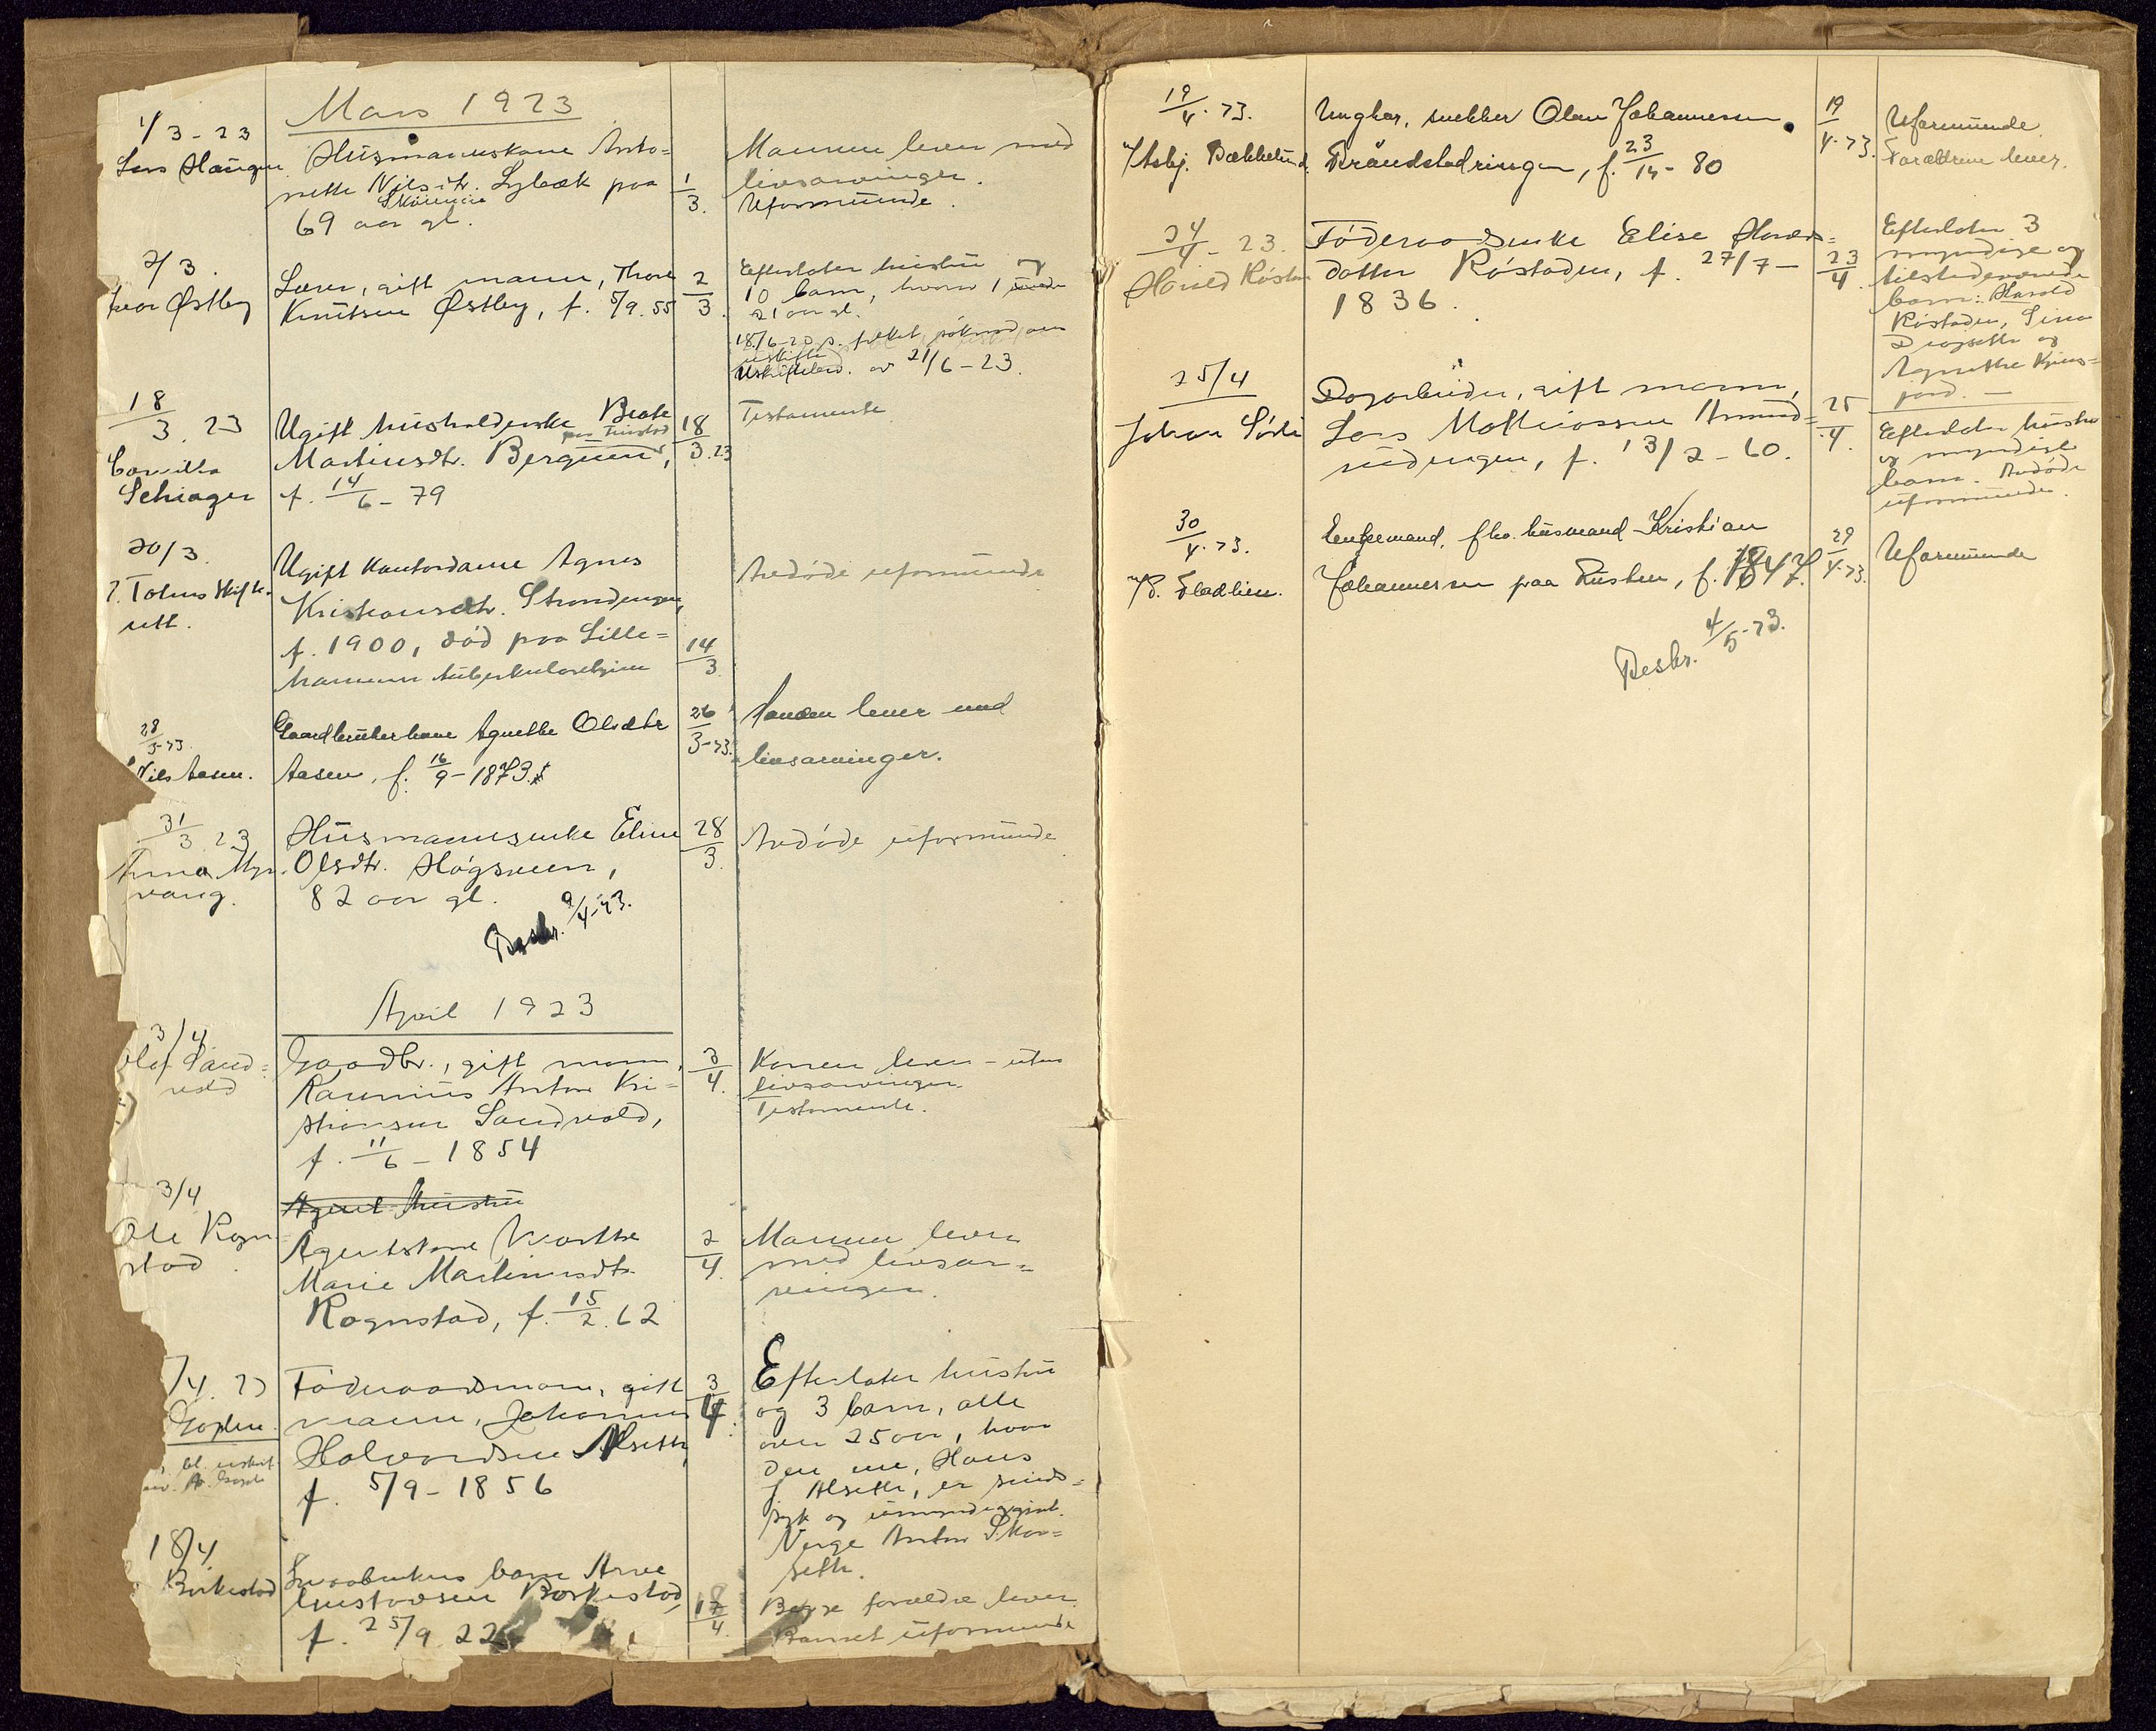 Mars 1923
1/3-23
Lars Haugen
Husmannskone Anto=
nette Nilsdtr. Lybæk paa
Skonnia
69 aar gl.
1/3.
Mannen lever med
livsarvinger.
Uformuende.
2/3.
Ivar Østby
Lærer, gift mann, Thore
Knutsen Østby, f. 5/9.55
2/3.
Efterlater hustru og
10 barn, hvorav 1 under
21 aar gl.
uskifte
Uskiftebev. av 21/6-23.
18/3.23
Camilla
Schiager
Ugift husholderske Beate
paa
Martinsdtr. Bergum,
f. 14/6-79
18/3.23
Testamente
20/3.
Ø. Totens Skifte-
rett.
Ugift kontordame Agnes
Kristiansdtr. Strandengen,
f. 1900, død paa Lille=
hammer tuberkulosehjem
14/3.
Avdøde uformuende
28/3-23.
Nils Aasen.
Gaardbrukerkone Agnethe Olsdtr
Aasen, f. 16/9-1873.
26/3-23.
Manden lever med
livsarvinger.
31/3.23
Anna Myr-
vang.
Husmannsenke Eline
Olsdtr. Høgsveen,
82 aar gl.
28/3.
Avdøde uformuende
Beskr. 9/4-23.
April 1923
3/4
Olaf Sand=
vold
Gaardbr., gift mann,
Rasmus Anton Kri=
stiansen Sandvold,
f. 11/6-1854
2/4.
Konen lever - uten
livsarvinger.
Testamente.
3/4
Ole Rogn
stad.
Agent hustru
Agentskone Marthe
Marie Martinusdtr.
Rognstad, f. 15/2.62
2/4.
Mannen lever
med livsar=
vinger.
/4.23
Føderaadsmann, gift
mann, Johannes
Halvordsen Alseth,
f. 5/9-1856
3/4.
Efterlater hustru
og 3 barn, alle
over 25 aar, hvor
den ene, Hans
J. Alseth, er sinds=
syk og umyndiggjort.
Verge Anton Skar=
seth.
18/4.
Borkestad
Smaabrukers barn Arne
Gustavsen Borkestad,
f. 25/9.22
17/4.
Begge forældre lever.
Barnet uformuende
19/4.23.
v/Asbj. Bækkelund.
Ungkar, snekker Olaus Johannessen
Brandstadringen, f. 23/10-80
19/4.23.
Uformuende.
Forældrene lever.
24/4-23.
Harald Røstad
Føderaadsenke Elise Harals=
datter Røstaden, f. 27/7-
1836.
23/4.
Efterlater 3
myndige og
tilstedeværende
barn: Harald
Røstaden, Lina
Dragseth og
Agnethe Kjens=
jord. -
25/4
Johan Sørli
Dagarbeider, gift mann,
Lars Mathiassen Amund=
rudengen, f. 13/2-60.
25/4.
Efterlater hustru
og myndige
barn. Avdøde
uformuende.
30/4.23.
v/P. Fladlien.
Enkemand, fhv. husmand Kristian
Johannessen paa Rusten, f. 1847.
29/4-23.
Uformuende
Beskr. 4/5-23.